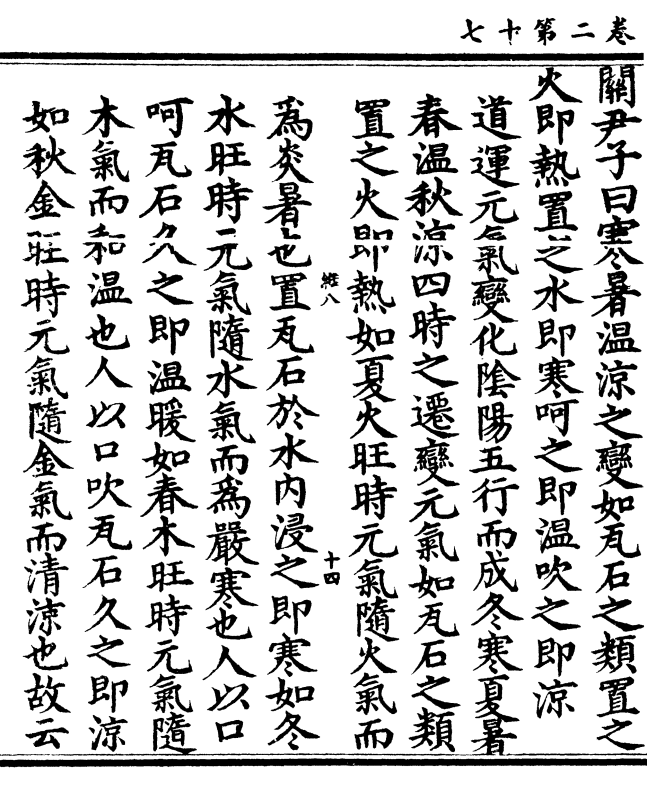 卷二第十七
關尹子曰寒暑温涼之變如瓦石之類置之
火即熱置之水即寒呵之即温吹之即涼
道運元氣變化陰陽五行而成冬寒夏暑
春温秋涼四時之遷變元氣如瓦石之類
置之火即熱如夏火旺時元氣隨火氣而
維八
十四
為炎暑也置瓦石於水内浸之即寒如冬
水旺時元氣隨水氣而為嚴寒也人以口
呵瓦石久之即温暖如春木旺時元氣隨
木氣而和温也人以口吹瓦石久之即涼
如秋金旺時元氣隨金氣而清涼也故云